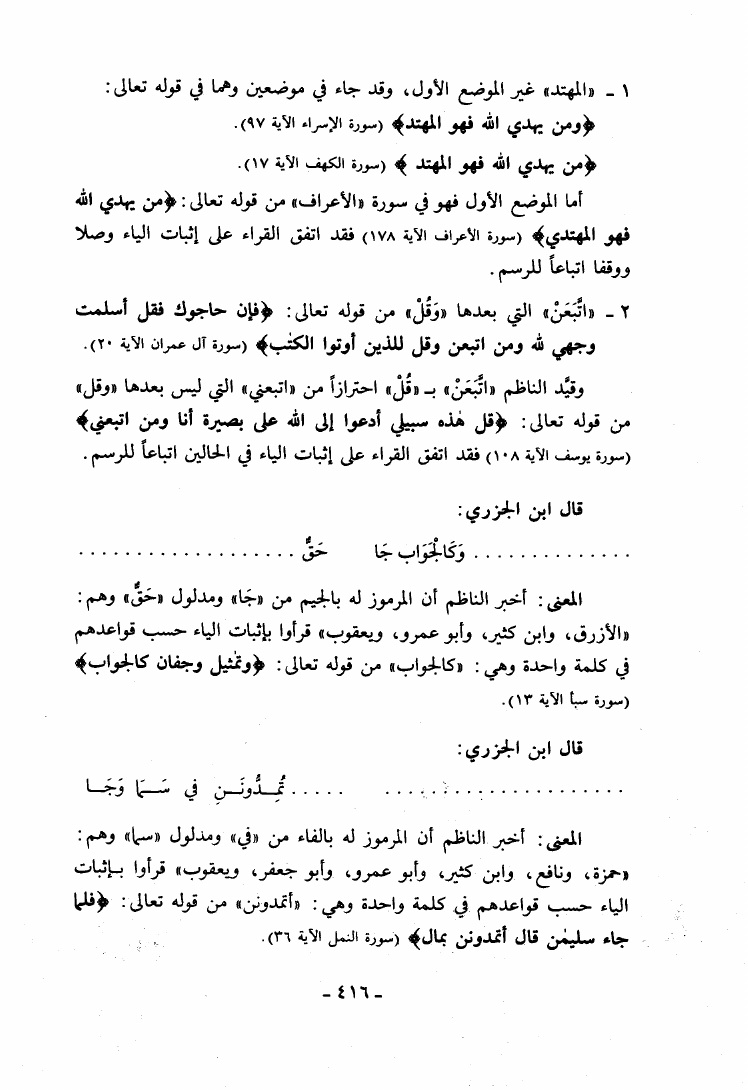 ١ - «المهتد» غير الموضع الأول، وقد جاء في موضعين وهما في قوله تعالى:
﴿ومن يهدي الله فهو المهتد﴾ (سورة الإسراء الآية ٩٧).
﴿من يهدي الله فهو المهتد ﴾ (سورة الكهف الآية ١٧).
أما الموضع الأول فهو في سورة «الأعراف» من قوله تعالى: ﴿من يهدي الله
فهو المهتدي﴾ (سورة الأعراف الآية ١٧٨) فقد اتفق القراء على إثبات الياء وصلا
ووقفا اتباعاً للرسم.
٢ - «اتَّبَعَنْ» التي بعدها «وَقُلْ» من قوله تعالى: ﴿فإن حاجوك فقل أسلمت
وجهي لله ومن اتبعن وقل للذين أوتوا الكتٰب﴾ (سورة آل عمران الآية ٢٠).
وقيَّد الناظم «اتَّبَعَنْ» بـ «قُلْ» احترازاً من «اتبعني» التي ليس بعدها «وقل»
من قوله تعالى: ﴿قل هٰذه سبيلي أدعوا إلى الله على بصيرة أنا ومن اتبعني﴾
(سورة يوسف الآية ١٠٨) فقد اتفق القراء على إثبات الياء في الحالين اتباعاً للرسم.
قال ابن الجزري:
.............. وَكَالْجَوَابِ جَا حَقٌّ ...................
المعنى: أخبر الناظم أن المرموز له بالجيم من «جَا» ومدلول «حَقٌّ» وهم:
«الأزرق، وابن كثير، وأبو عمرو، ويعقوب» قرأوا بإثبات الياء حسب قواعدهم
في كلمة واحدة وهي: «كالجواب» من قوله تعالى: ﴿وتمٰثيل وجفان كالجواب﴾
(سورة سبأ الآية ١٣).
قال ابن الجزري:
..................... ..... تُمِـدُّونَـنِ في سَـمَا وَجَـا
المعنى: أخبر الناظم أن المرموز له بالفاء من «في» ومدلول «سما» وهم:
«حمزة، ونافع، وابن كثير، وأبو عمرو، وأبو جعفر، ويعقوب» قرأوا بإثبات
الياء حسب قواعدهم في كلمة واحدة وهي: «أتمدونن» من قوله تعالى: ﴿فلما
جاء سليمٰن قال أتمدونن بمال﴾ (سورة النمل الآية ٣٦).
- ٤١٦ -